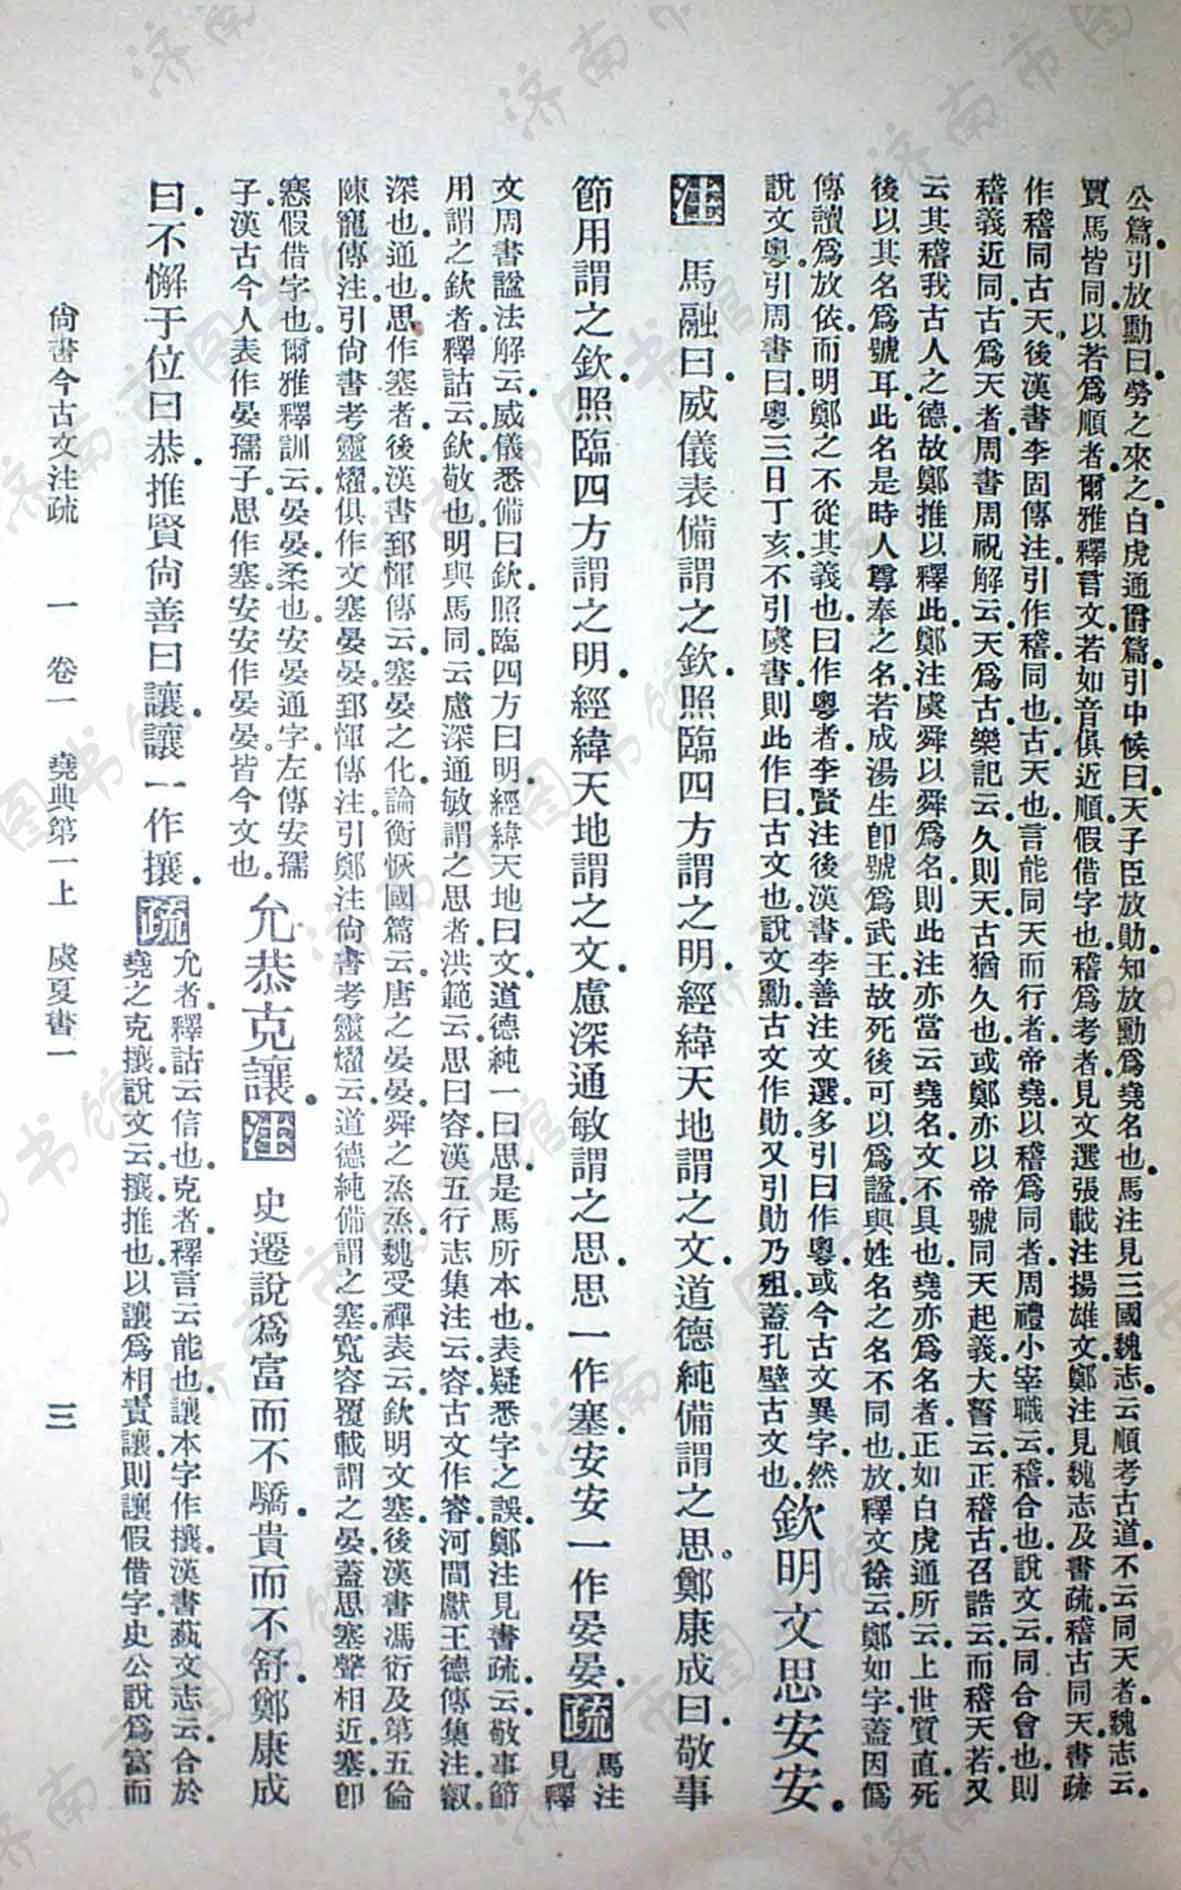 公篇引放勳曰勞之來之白虎通爵篇引中候曰天子臣放勛知放勳爲堯名也馬注見三國魏志云順考古道不云同天者魏志云
賈馬皆同以若爲順者爾雅釋言文若如音俱近順假借字也稽爲考者見文選張載注揚雄文鄭注見魏志及書疏稽古同天書疏
作稽同古天後漢書李固傳注引作稽同也古天也言能同天而行者帝堯以稽爲同者周禮小宰職云稽合也說文云同合會也則
稽義近同古爲天者周書周祝解云天爲古樂記云久則天古猶久也或鄭亦以帝號同天起義大誓云正稽古召誥云而稽天若又
云其稽我古人之德故鄭推以釋此鄭注虞舜以舜爲名則此注亦當云堯名文不具也堯亦爲名者正如白虎通所云上世質直死
後以其名爲號耳此名是時人尊奉之名若成湯生卽號爲武王故死後可以爲諡與姓名之名不同也放釋文徐云鄭如字蓋因僞
傳讀爲放依而明鄭之不從其義也曰作粵者李賢注後漢書李善注文選多引曰作粵或今古文異字然
說文粵引周書曰粵三日丁亥不引虞書則此作曰古文也說文勳古文作勛又引勛乃殂蓋孔壁古文也
欽明文思安安
注 馬融曰威儀表備謂之欽照臨四方謂之明經緯天地謂之文道德純備謂之思鄭康成曰敬事
節用謂之欽照臨四方謂之明經緯天地謂之文慮深通敏謂之思思一作塞安安一作晏晏疏
馬注
見釋
文周書諡法解云威儀悉備曰欽照臨四方曰明經緯天地曰文道德純一曰思是馬所本也表疑悉字之誤鄭注見書疏云敬事節
用謂之欽者釋詁云欽敬也明與馬同云慮深通敏謂之思者洪範云思曰容漢五行志集注云容古文作睿河間獻王德傳集注叡
深也通也思作塞者後漢書郅惲傳云塞晏之化論衡恢國篇云唐之晏晏舜之烝烝魏受禪表云欽明文塞後漢書馮衍及第五倫
陳寵傳注引尙書考靈燿俱作文塞晏晏郅惲傳注引鄭注尙書考靈燿云道德純備謂之塞寬容覆載謂之晏蓋思塞聲相近塞卽
寋假借字也爾雅釋訓云晏晏柔也安晏通字左傳安孺
子漢古今人表作晏孺子思作塞安安作晏晏皆今文也
允恭克讓注 史遷說爲富而不驕貴而不舒鄭康成
曰不懈于位曰恭推賢尙善曰讓讓一作攘疏
允者釋詁云信也克者釋言云能也讓本字作攘漢書藝文志云合於
堯之克攘說文云攘推也以讓爲相責讓則讓假借字史公說爲富而
尙書今古文注疏 一 卷一 堯典第一上 虞夏書一 三